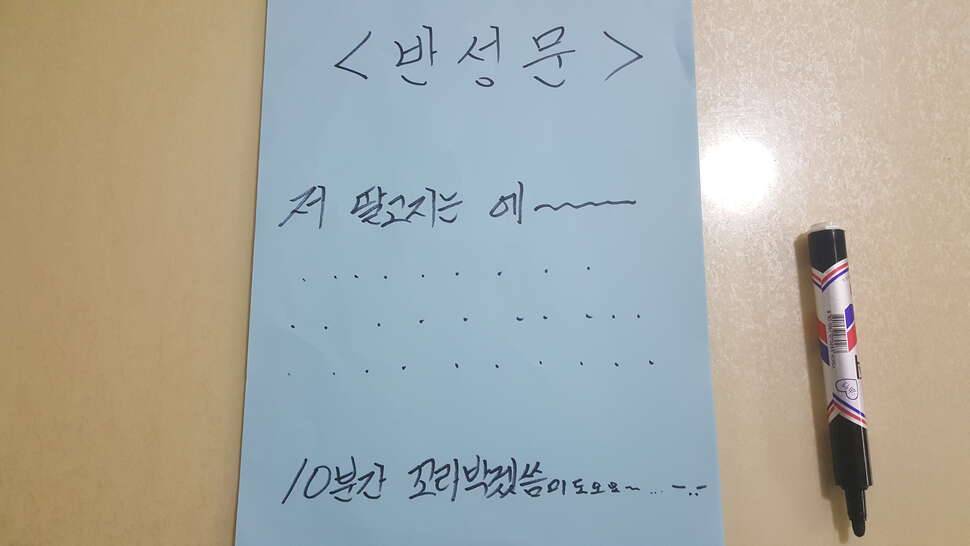 <반성문>
저 딸고지는 에~~~~
. . . . . . . . .
. . . . . . . . . . . .
. . . . . . . . . . . .
10분간 꼬리박겠씀이도오요~ ... -.-